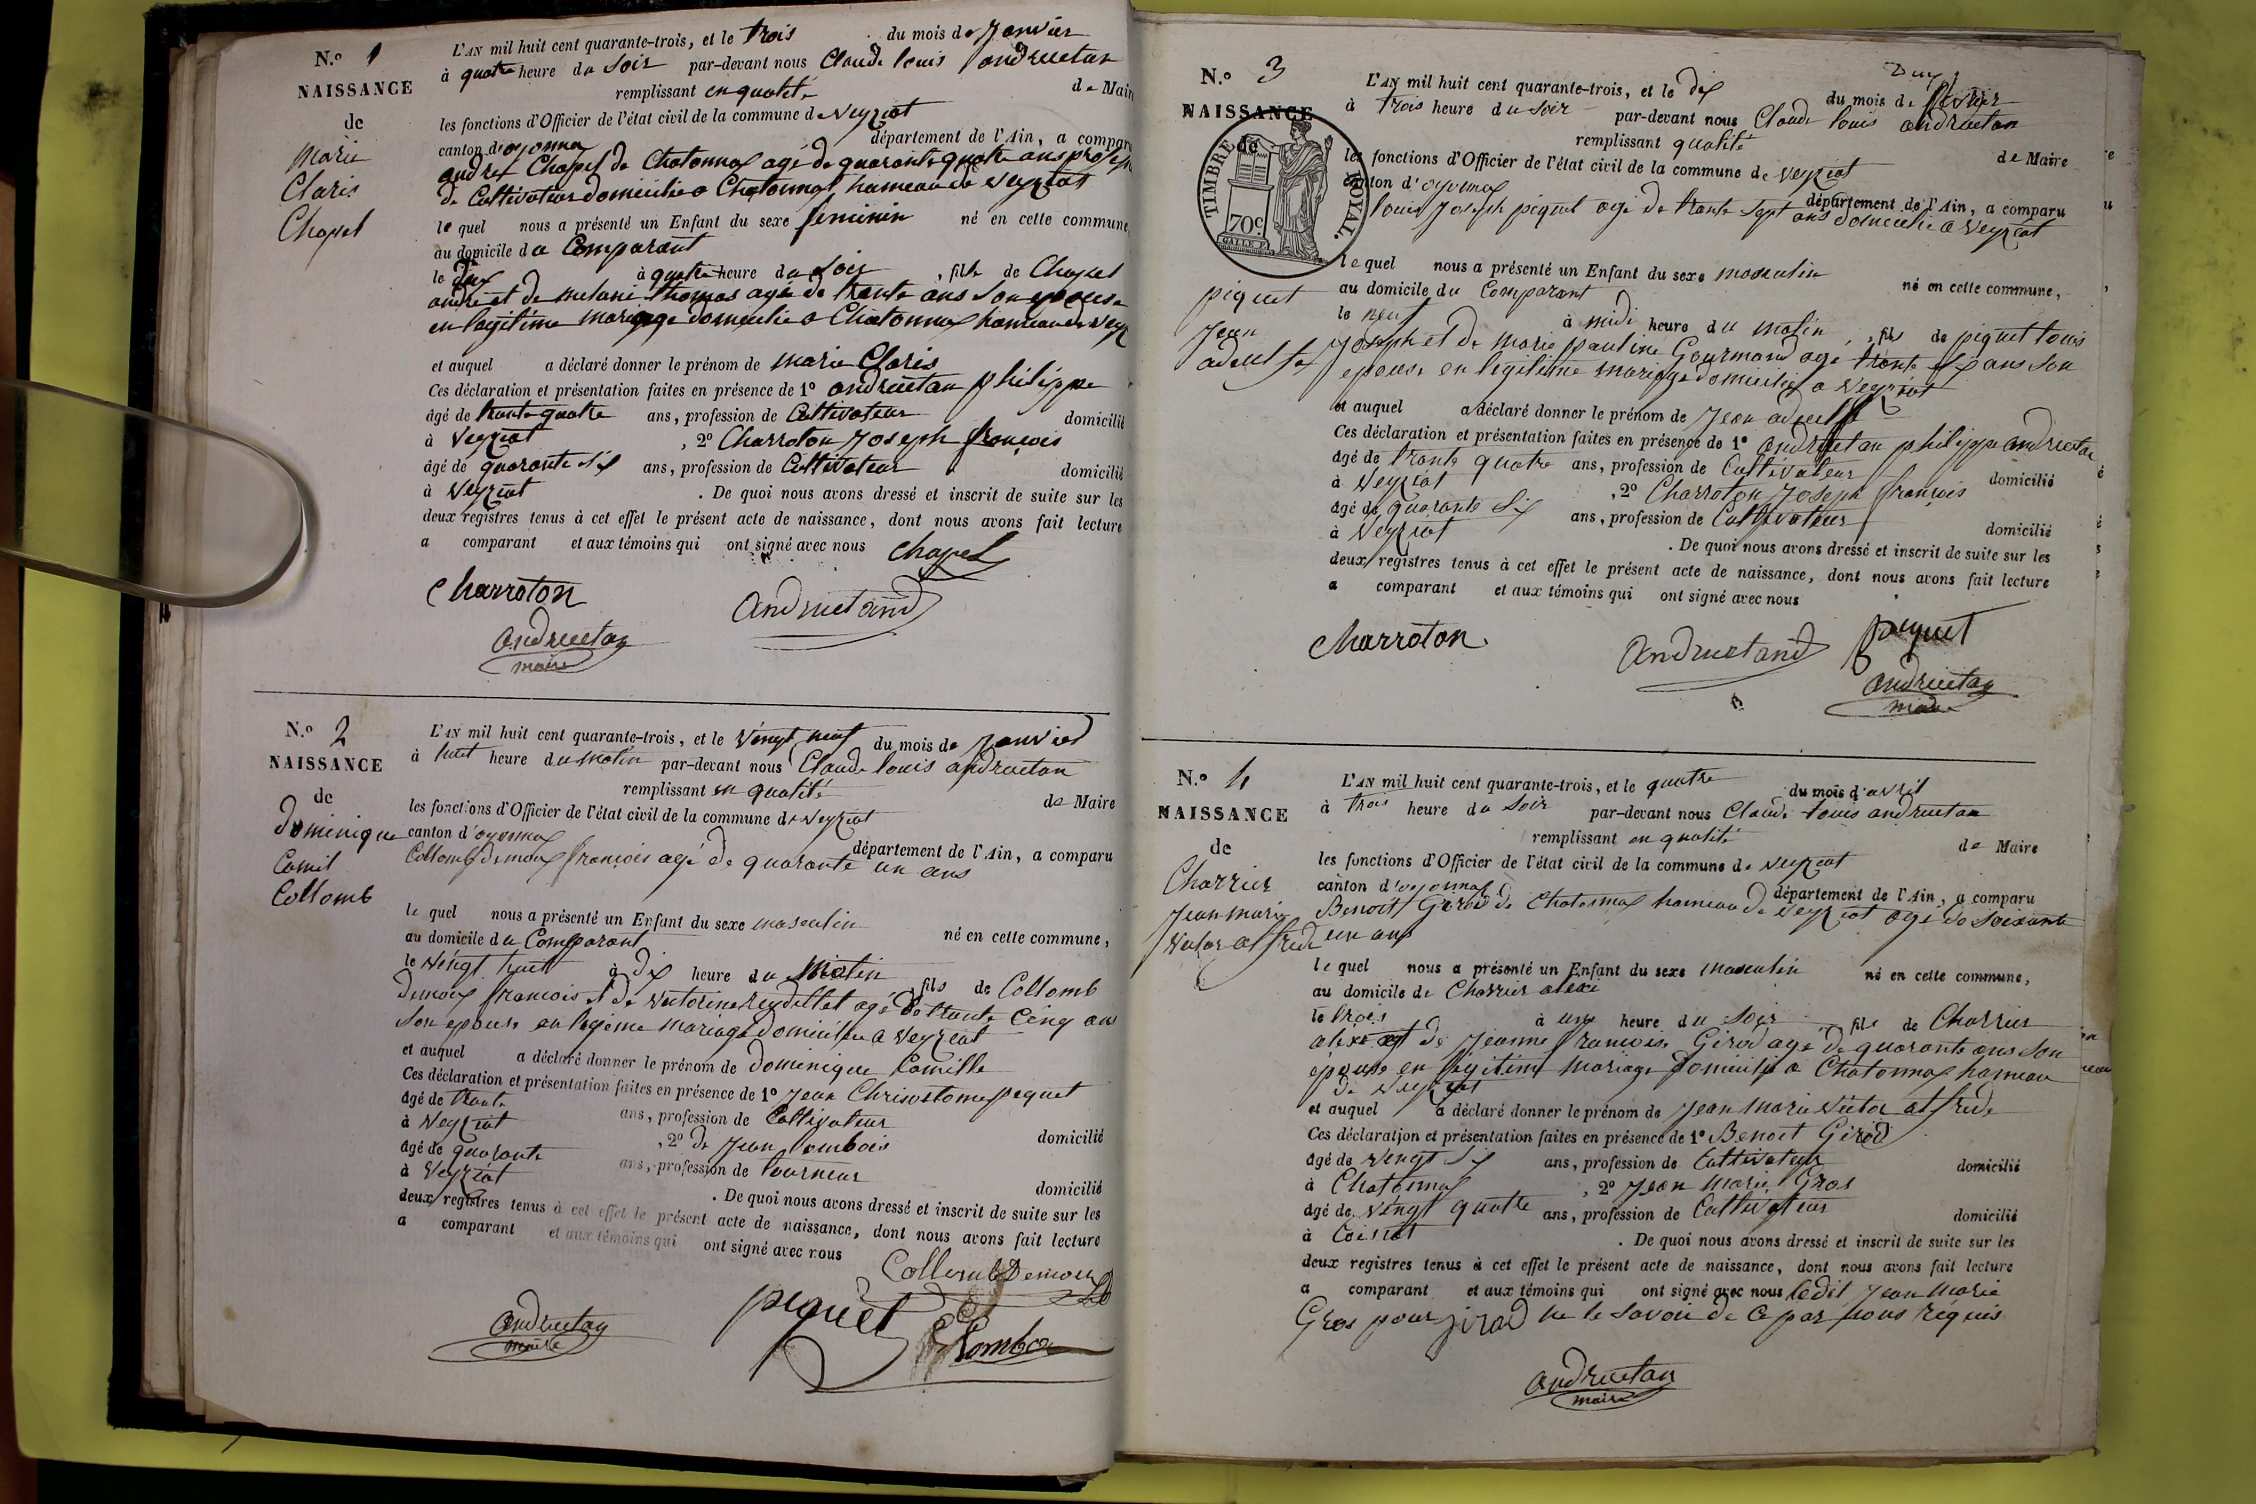 N.º 1
NAISSANCE
de
Marie
Claris
Chapel
L'AN mil huit cent quarante-trois, et le trois du mois de Janvier
à quatre heure du Soir par-devant nous Claude louis andruetan
remplissant en qualité de Maire
les fonctions d'Officier de l'état civil de la commune de Veyziat
canton d'oyonnax département de l'Ain, a comparu
andré Chapel de Chatonnax agé de quarante quatre ans profession
de Cultivateur domicilié a Chatonnax hameau de Veyziat
le quel nous a présenté un Enfant du sexe féminin né en cette commune,
au domicile du Comparant
le deux à quatre heure du Soir , fille de Chapel
andré et de melani thomas agé de trante ans Son epouse
en legitime mariage domicilié a Chatonnax hameau de Veyz
et auquel a déclaré donner le prénom de marie Claris
Ces déclaration et présentation faites en présence de 1º andruetan philippe
âgé de trante quatre ans, profession de Cultivateur domicilié
à Veyziat , 2º Charroton Joseph françois
âgé de quarante Six ans, profession de Cultivateur domicilié
à Veyziat . De quoi nous avons dressé et inscrit de suite sur les
deux registres tenus à cet effet le présent acte de naissance, dont nous avons fait lecture
a comparant et aux témoins qui ont signé avec nous Chapel
Charroton andruetand
andruetan
maire
N.º 2
NAISSANCE
de
Dominique
Camil
Collomb
L'AN mil huit cent quarante-trois, et le Vingt neuf du mois de Janvier
à huit heure du matin par-devant nous Claude louis andruetan
remplissant en qualité de Maire
les fonctions d'Officier de l'état civil de la commune de Veyziat
canton d'oyonnax département de l'Ain, a comparu
Collomb Demoux françois agé de quarante un ans
le quel nous a présenté un Enfant du sexe masculin né en cette commune,
au domicile du Comparant
le Vingt huit à Dix heure du Matin , fils de Collomb
Demoux francois et de Victorine reydellet agé de trante Cinq ans
Son epouse en legieme mariage domicilié a Veyziat
et auquel a déclaré donner le prénom de dominique Camille
Ces déclaration et présentation faites en présence de 1º Jean Chrisostome piquet
âgé de trante ans, profession de Cultivateur domicilié
à Veyziat , 2º de Jean lombois
âgé de quarante ans, profession de tourneur domicilié
à Veyziat . De quoi nous avons dressé et inscrit de suite sur les
deux registres tenus à cet effet le présent acte de naissance, dont nous avons fait lecture
a comparant et aux témoins qui ont signé avec nous
Collomb Demoux
andruetan piquet
maire
N.º 3
NAISSANCE
de
TIMBRE ROYAL.
70c.
piquet
Jean
L'AN mil huit cent quarante-trois, et le dix du mois de fevrier
à trois heure du Soir par-devant nous Claude louis andruetan
remplissant qualité de Maire
les fonctions d'Officier de l'état civil de la commune de Veyziat
canton d'oyonnax département de l'Ain, a comparu
louis Joseph piquet agé de trante Sept ans domicilié a Veyziat
le quel nous a présenté un Enfant du sexe masculin né en cette commune,
au domicile du Comparant
le neuf à midi heure du matin , fils de piquet louis
Joseph et de marie pauline Gourmand agé trante ans Son
epouse en legitime mariage domicilié a Veyziat
et auquel a déclaré donner le prénom de Jean
Ces déclaration et présentation faites en présence de 1º andruetan philippe andruetan
âgé de trante quatre ans, profession de Cultivateur domicilié
à Veyziat , 2º Charroton Joseph françois
âgé de quarante Six ans, profession de Cultivateur domicilié
à Veyziat . De quoi nous avons dressé et inscrit de suite sur les
deux registres tenus à cet effet le présent acte de naissance, dont nous avons fait lecture
a comparant et aux témoins qui ont signé avec nous
Charroton andruetand piquet
andruetan
maire
N.º 4
NAISSANCE
de
Charrier
Jean marie
Victor alfrede
L'AN mil huit cent quarante-trois, et le quatre du mois d'avril
à trois heure du Soir par-devant nous Claude louis andruetan
remplissant en qualité de Maire
les fonctions d'Officier de l'état civil de la commune de Veyziat
canton d'oyonnax département de l'Ain, a comparu
Benoit Girod de Chatonnax hameau de Veyziat agé de Soixante
un ans
le quel nous a présenté un Enfant du sexe masculin né en cette commune,
au domicile de Charrier alexi
le trois à une heure du Soir fils de Charrier
alexi et de Jeanne francoise Girod agé de quarante ans Son
epouse en legitime mariage domicilié a Chatonnax hameau
de Veyziat
et auquel a déclaré donner le prénom de Jean Marie Victor alfrede
Ces déclaration et présentation faites en présence de 1º Benoit Girod
âgé de vingt Six ans, profession de Cultivateur domicilié
à Chatonnax , 2º Jean Marie Gros
âgé de vingt quatre ans, profession de Cultivateur domicilié
à Coisiat . De quoi nous avons dressé et inscrit de suite sur les
deux registres tenus à cet effet le présent acte de naissance, dont nous avons fait lecture
a comparant et aux témoins qui ont signé avec nous ledit Jean Marie
Gros pour girod ne le Savoir de Ce par nous réquis
andruetan
maire